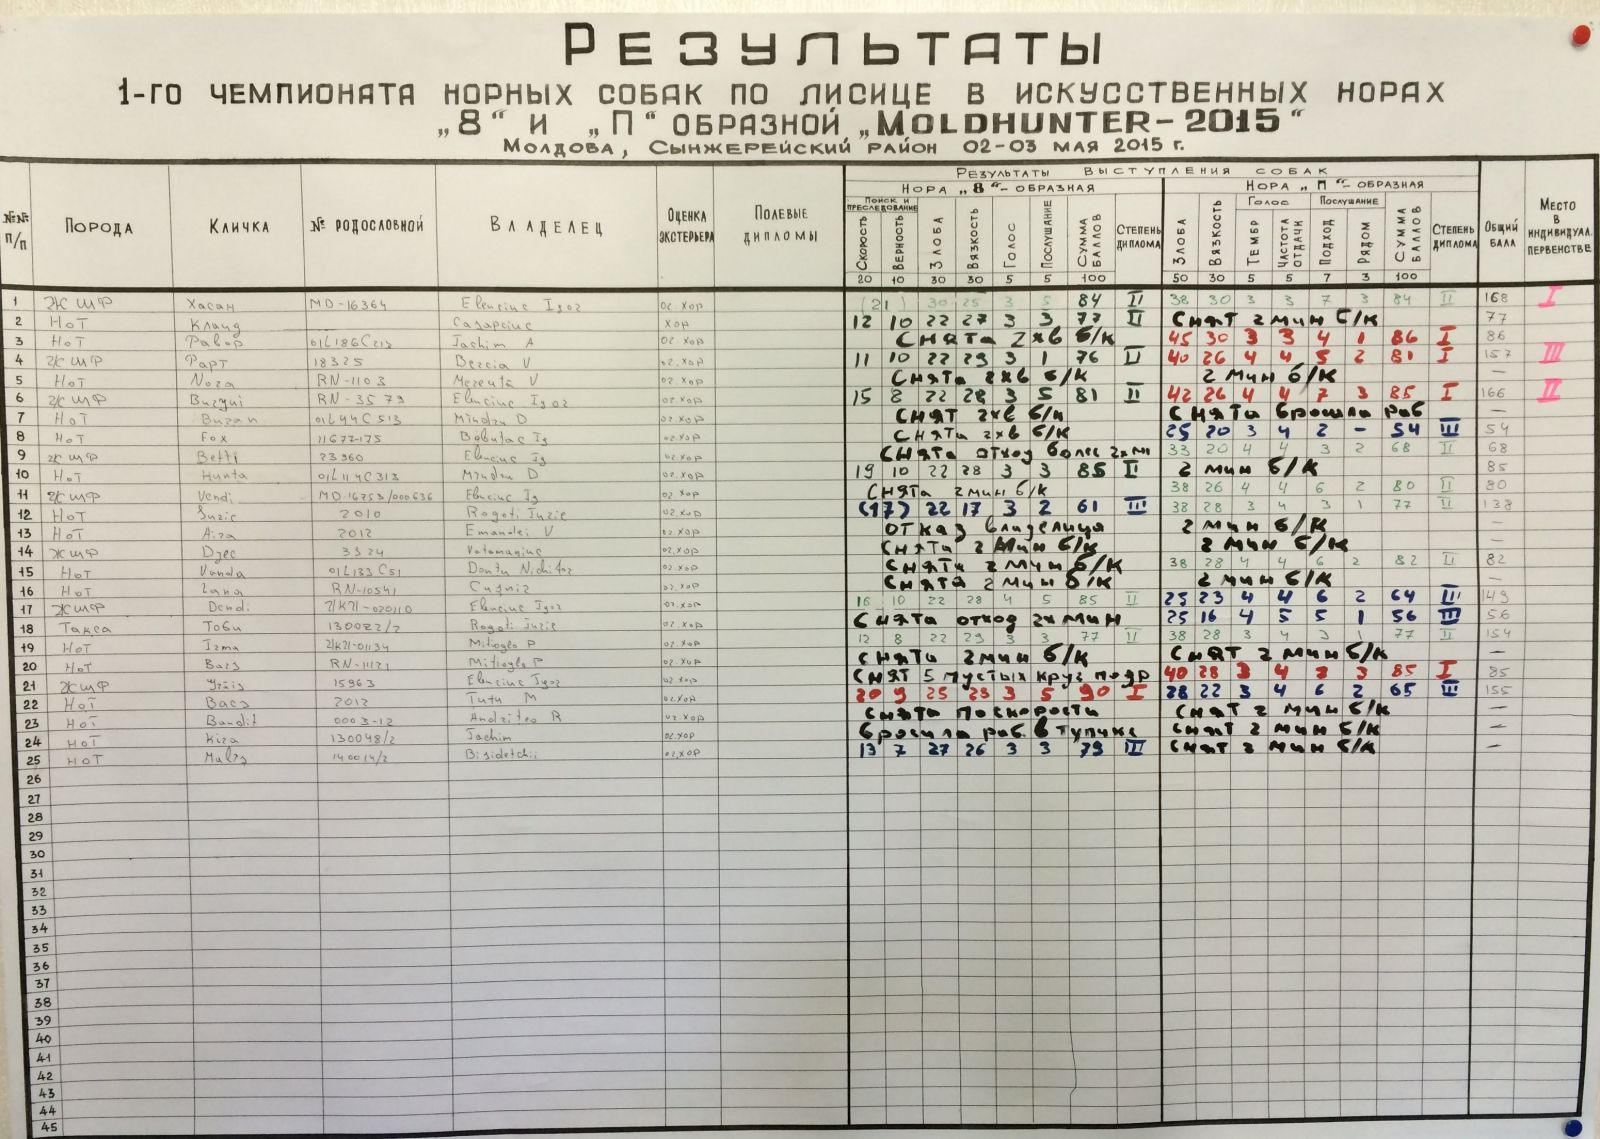 РЕЗУЛЬТАТЫ
1-ГО ЧЕМПИОНАТА НОРНЫХ СОБАК ПО ЛИСИЦЕ В ИСКУССТВЕННЫХ НОРАХ
„8“ И „П“ ОБРАЗНОЙ „MOLDHUNTER-2015“
МОЛДОВА, СЫНЖЕРЕЙСКИЙ РАЙОН 02-03 МАЯ 2015 г.
РЕЗУЛЬТАТЫ ВЫСТУПЛЕНИЯ СОБАК
НОРА „8“-ОБРАЗНАЯ НОРА „П“-ОБРАЗНАЯ
№№ П/П ПОРОДА КЛИЧКА № РОДОСЛОВНОЙ ВЛАДЕЛЕЦ ОЦЕНКА ЭКСТЕРЬЕРА ПОЛЕВЫЕ ДИПЛОМЫ ПОИСК И ПРЕСЛЕДОВАНИЕ СКОРОСТЬ ВЕРНОСТЬ ЗЛОБА ВЯЗКОСТЬ ГОЛОС ПОСЛУШАНИЕ СУММА БАЛЛОВ СТЕПЕНЬ ДИПЛОМА ЗЛОБА ВЯЗКОСТЬ ГОЛОС ТЕМБР ЧАСТОТА ОТДАЧИ ПОСЛУШАНИЕ ПОДХОД РЯДОМ СУММА БАЛЛОВ СТЕПЕНЬ ДИПЛОМА ОБЩИЙ БАЛЛ МЕСТО В ИНДИВИДУАЛ. ПЕРВЕНСТВЕ
20 10 30 30 5 5 100 50 30 5 5 7 3 100
1 ЖШФ Хасан MD-16364 Elenciuc Igor ОТ.ХОР (21) 30 25 3 5 84 II 38 30 3 3 7 3 84 II 168 I
2 НОТ Клауд ХОР 12 10 22 27 3 3 77 II СНЯТ 2 МИН Б/К 77
3 НОТ Равор 01L186C213 Iachim A ОТ.ХОР СНЯТА 2ХВ Б/К 45 30 3 3 4 1 86 I 86
4 ЖШФ Рарт 18325 Bercia V ОТ.ХОР 11 10 22 29 3 1 76 II 40 26 4 4 5 2 81 I 157 III
5 НОТ Nora RN-1103 V ОТ.ХОР СНЯТА 2ХВ Б/К 2 МИН Б/К —
6 ЖШФ RN-3579 Elenciuc Igor ОТ.ХОР 15 8 22 28 3 5 81 II 42 26 4 4 7 3 85 I 166 II
7 НОТ 01L44C513 Mindru D ОТ.ХОР СНЯТ 2ХВ Б/К СНЯТА БРОСИЛА РАБ —
8 НОТ Fox 11677-175 Bobutac Ig ОТ.ХОР СНЯТА 2ХВ Б/К 25 20 3 4 2 - 54 III 54
9 ЖШФ Betti 23360 Elenciuc Ig ОТ.ХОР СНЯТА ОТХОД БОЛЕЕ 2Х МИ 33 20 4 4 3 2 68 II 68
10 НОТ Hunta 01L114C313 Mindru D ОТ.ХОР 19 10 22 28 3 3 85 2 МИН Б/К 85
11 ЖШФ Vendi MD-16253/000636 Elenciuc Ig ОТ.ХОР СНЯТА 2 МИН Б/К 38 26 4 4 6 2 80 II 80
12 НОТ 2010 Rogoti Iurie ОТ.ХОР (17) 22 17 3 2 61 III 38 28 3 4 3 1 77 II 138
13 НОТ Aira 2012 V ОТ.ХОР ОТКАЗ ВЛАДЕЛИЦА 2 МИН Б/К —
14 ЖШФ Djec 3324 Vatamaniuc ОТ.ХОР СНЯТА 2 МИН Б/К 2 МИН Б/К —
15 НОТ Vanda 01L133C51 Dontu Nichita ОТ.ХОР СНЯТА 2 МИН Б/К 38 28 4 4 6 2 82 II 82
16 НОТ Lana RN-10541 ОТ.ХОР СНЯТА 2 МИН Б/К 2 МИН Б/К —
17 ЖШФ Dendi Elenciuc Igor ОТ.ХОР 16 10 22 28 4 5 85 II 25 23 4 4 6 2 64 III 149
18 ТАКСА Тоби 130022/2 Rogoti Iurie ОТ.ХОР СНЯТА ОТХОД 2Х МИН 25 16 4 5 5 1 56 III 56
19 НОТ Irma Mitioglo P ОТ.ХОР 12 8 22 29 3 3 77 II 38 28 3 4 3 1 77 II 154
20 НОТ Bars RN-11121 Mitioglo P ОТ.ХОР СНЯТА 2 МИН Б/К СНЯТ 2 МИН Б/К —
21 ЖШФ 15963 Elenciuc Igor ОТ.ХОР СНЯТ 5 ПУСТЫХ КРУГ ПОДР 40 28 3 4 7 3 85 I 85
22 НОТ Bars 2012 Tutu M ОТ.ХОР 20 9 25 28 3 5 90 I 28 22 3 4 6 2 65 III 155
23 НОТ Bandit 0003-12 R ОТ.ХОР СНЯТА ПО СКОРОСТИ СНЯТ 2 МИН Б/К —
24 НОТ Kira 130048/2 Iachim ОТ.ХОР БРОСИЛА РАБ. В ТУПИКЕ СНЯТ 2 МИН Б/К —
25 НОТ 140014/2 ОТ.ХОР 13 7 27 26 3 3 79 III СНЯТ 2 МИН Б/К —
26
27
28
29
30
31
32
33
34
35
36
37
38
39
40
41
42
43
44
45